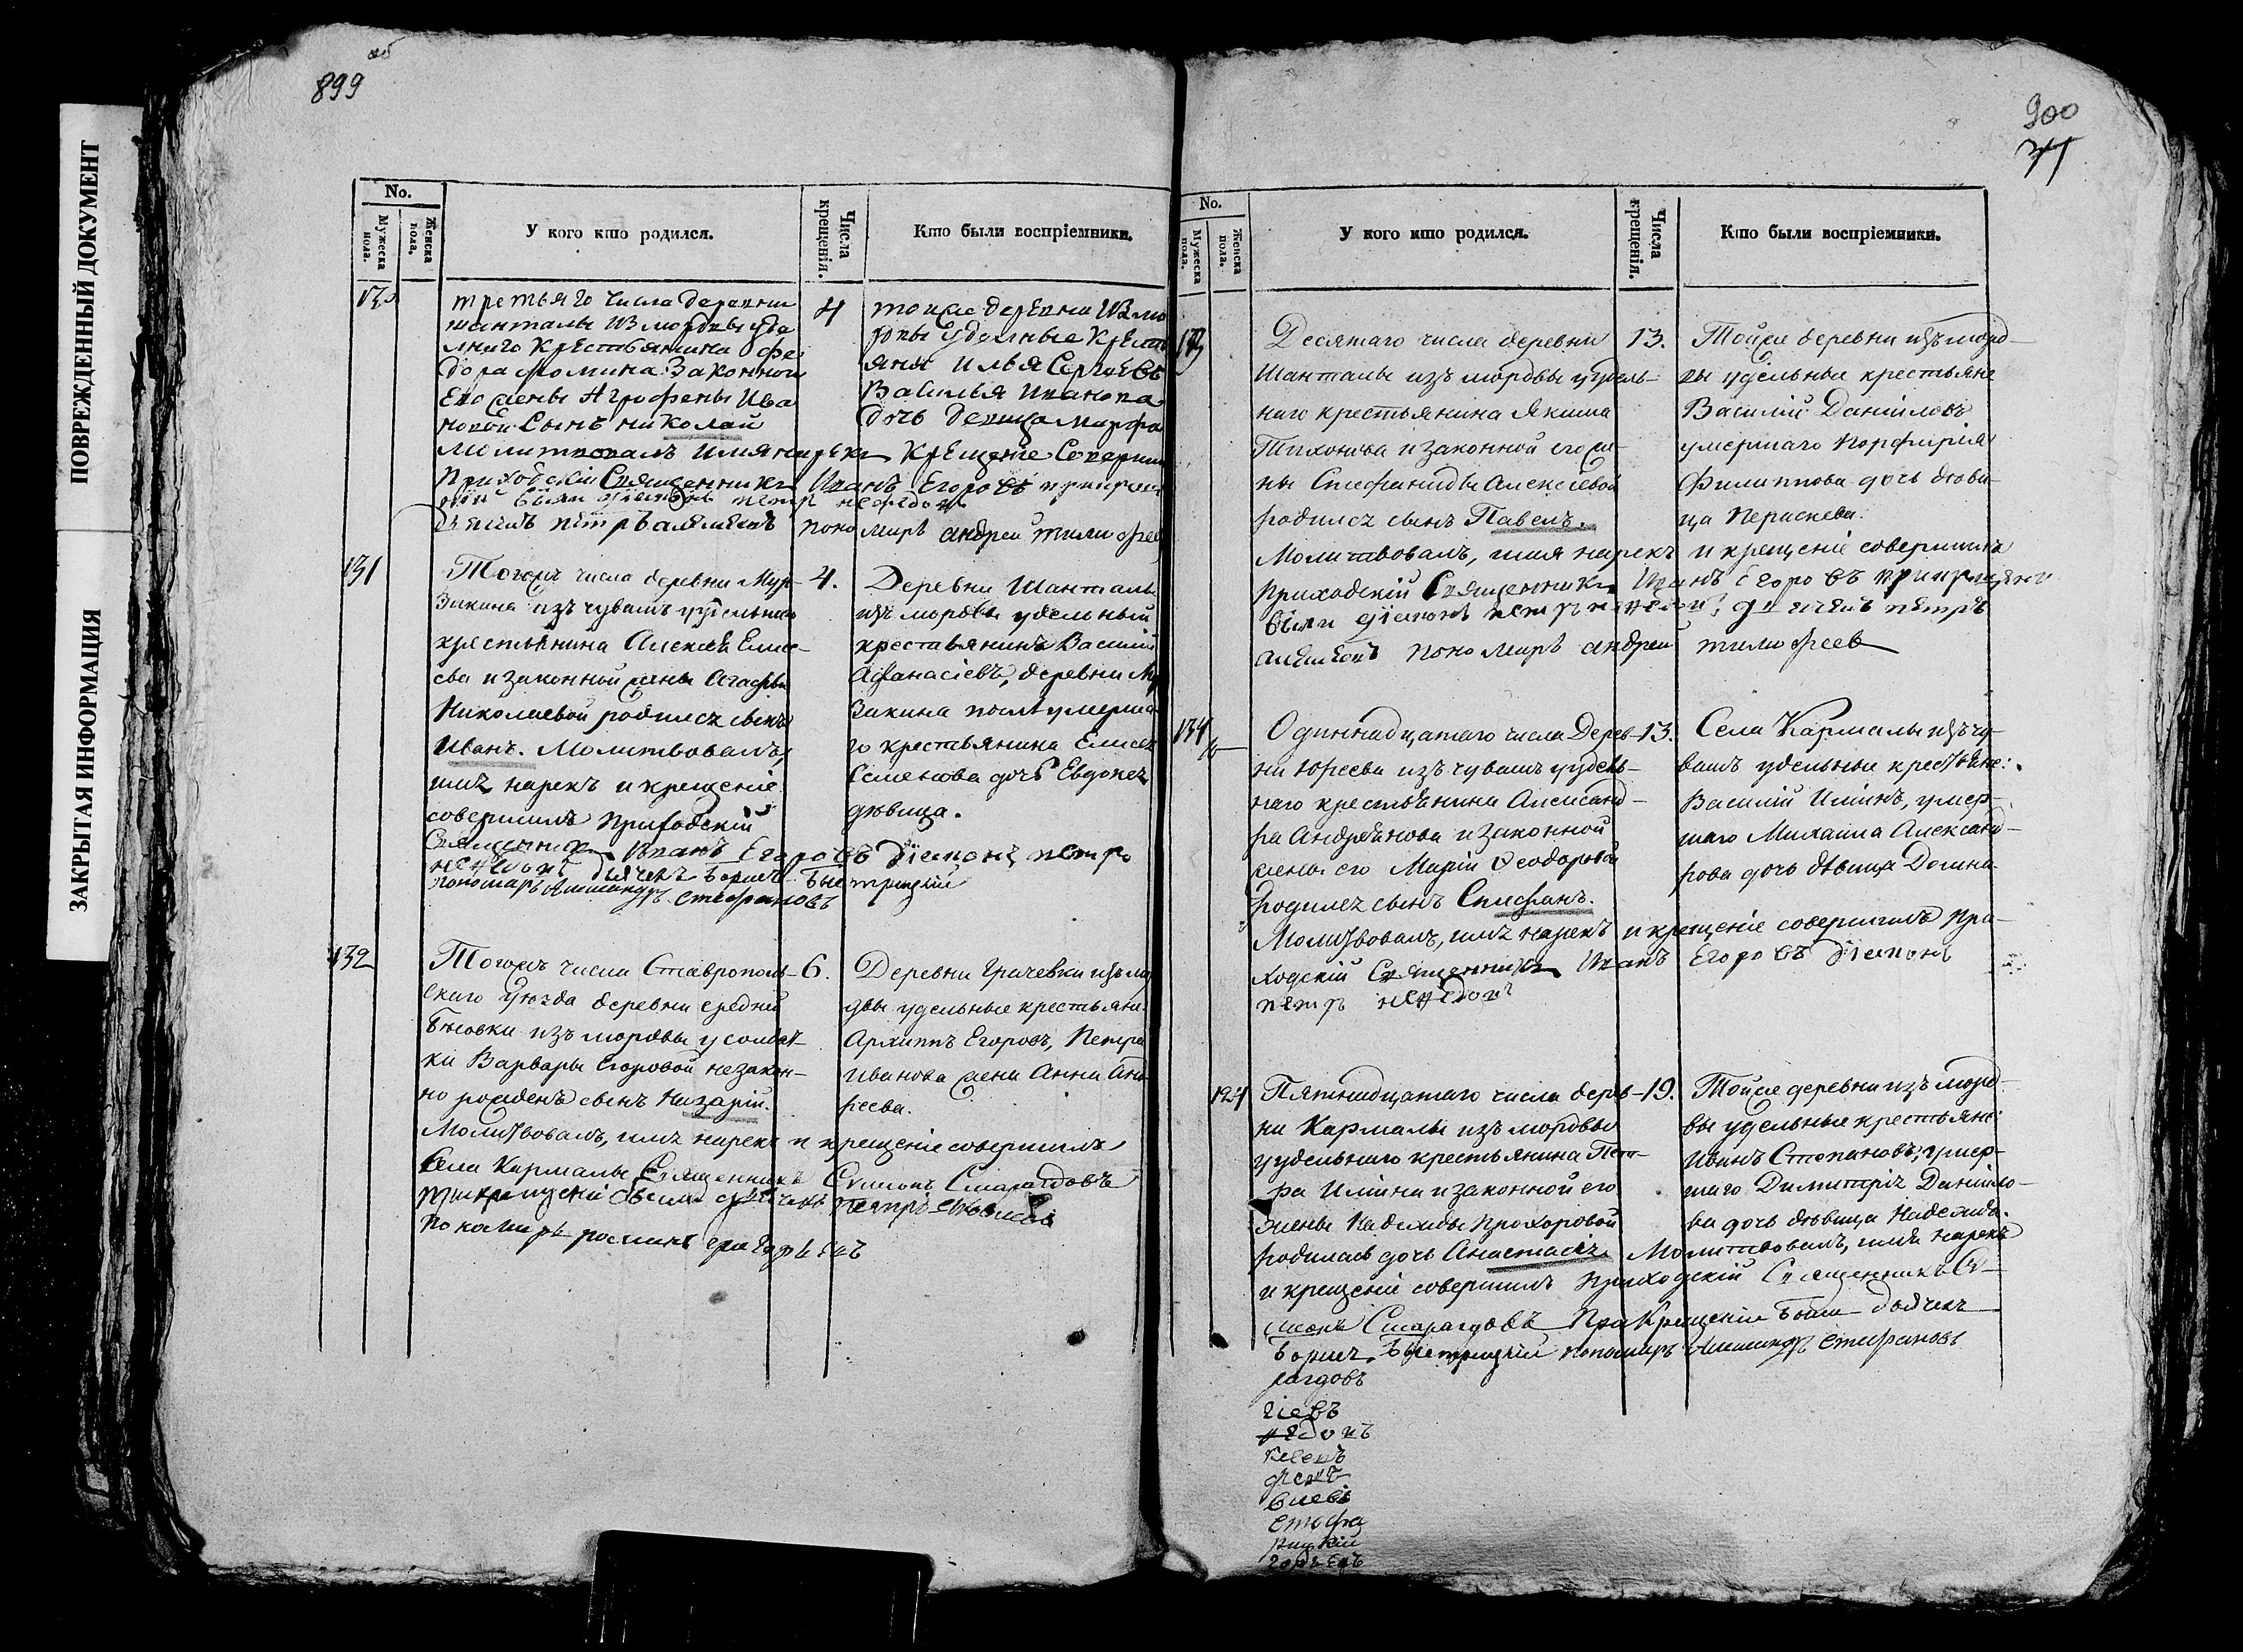 ПОВРЕЖДЕННЫЙ ДОКУМЕНТ
ЗАКРЫТАЯ ИНФОРМАЦИЯ
899 об
No.
Мужеска пола.
Женска пола.
У кого кто родился.
Числа крещенія.
Кто были воспріемники.
третьяго числа деревни
шанталы из мордвы уде
лнаго крестьянина фе
дора фомина законной
его жены Агрофены Ива
новой сынъ николай
молитвовалъ имя нарекъ крещеніе соверши
приходскій священникъ Иванъ Егоровъ при
были діаконъ петр
петръ пономарь андреи тимофеев
4
тоиже деревни из мо
рдвы удельные крест
яня илья Сергеевъ
Василья иванова
дочь девица марфа
131
Тогожъ числа деревни Мур-
зикина изъ чувашъ у удельнаго
крестьянина Алексѣя Елисе-
ева и законной жены Агафьи
Николаевой родился сынъ
Иванъ. Молитвовалъ,
имя нарекъ и крещеніе
совершилъ приходскій
Священникъ Иванъ Егоровъ діаконъ петръ
дьячекъ Борисъ Быстрицкій
пономарь Александръ Стефановъ
4.
Деревни Шанталы
изъ мордвы удельный
крестьянинъ Василій
Афанасіевъ, деревни Му
зикина умерша
го крестьянина Елисея
Семенова дочь Евдокея
дѣвица.
132
Тогожъ числа Ставрополь-
скаго Уѣзда деревни средней
Бѣсовки изъ мордвы у солдат-
ки Варвары Егоровой незакон-
но рожденъ сынъ Назарій.
Молитвовалъ, имя нарекъ и крещеніе совершилъ
Села Кармалы Священникъ Симеонъ Смарагдовъ
при крещеніи были дьячекъ петръ
пономарь романъ
6.
Деревни Грачевки изъ мо
рдвы удельные крестьяне
Архиппъ Егоровъ, Петра
Иванова жена Анна Анд
реева.
900
No.
Мужеска пола.
Женска пола.
У кого кто родился.
Числа крещенія.
Кто были воспріемники.
133
Десятаго числа деревни
Шанталы изъ мордвы у удель-
наго крестьянина Якима
Тихонова и законной его же-
ны Степаниды Алексѣевой
родился сынъ Павелъ.
Молитвовалъ, имя нарекъ и крещеніе совершилъ
приходскій Священникъ Иванъ Егоровъ при крещеніи
были діаконъ петръ дьячекъ петръ
пономарь андреи тимофеев
13.
Тойже деревни изъ морд-
вы удельные крестьяне
Василій Даниловъ
умершаго Порфирія
Филиппова дочь дѣви-
ца Параскева.
134
Одиннадцатаго числа Дерев-
ни Юреева изъ чувашъ у удель-
наго крестьянина Александ-
ра Андреянова и законной
жены его Маріи Ѳеодоровой
родился сынъ Стефанъ.
Молитвовалъ, имя нарекъ и крещеніе совершилъ при-
ходскій Священникъ Иванъ Егоровъ діаконъ
петръ
13.
Села Кармалы изъ чу-
вашъ удельные крестьяне:
Василій Ильинъ, умер-
шаго Михаила Александ-
рова дочь дѣвица Домна
124
Пятнадцатаго числа дерев-
ни Кармалы изъ мордвы
у удельнаго крестьянина Пет-
ра Ильина и законной его
жены Надежды Прохоровой
родилась дочь Анастасія. Молитвовалъ, имя нарекъ
и крещеніе совершилъ приходскій Священникъ Си-
меонъ Смарагдовъ При крещеніи были дьячекъ
Борисъ Быстрицкій пономарь Александръ Стефановъ
19.
Тойже деревни изъ морд-
вы удельные крестьяне:
Иванъ Степановъ, умер-
шаго Димитрія Данило-
ва дочь дѣвица Надежда.
рагдовъ
гіевъ